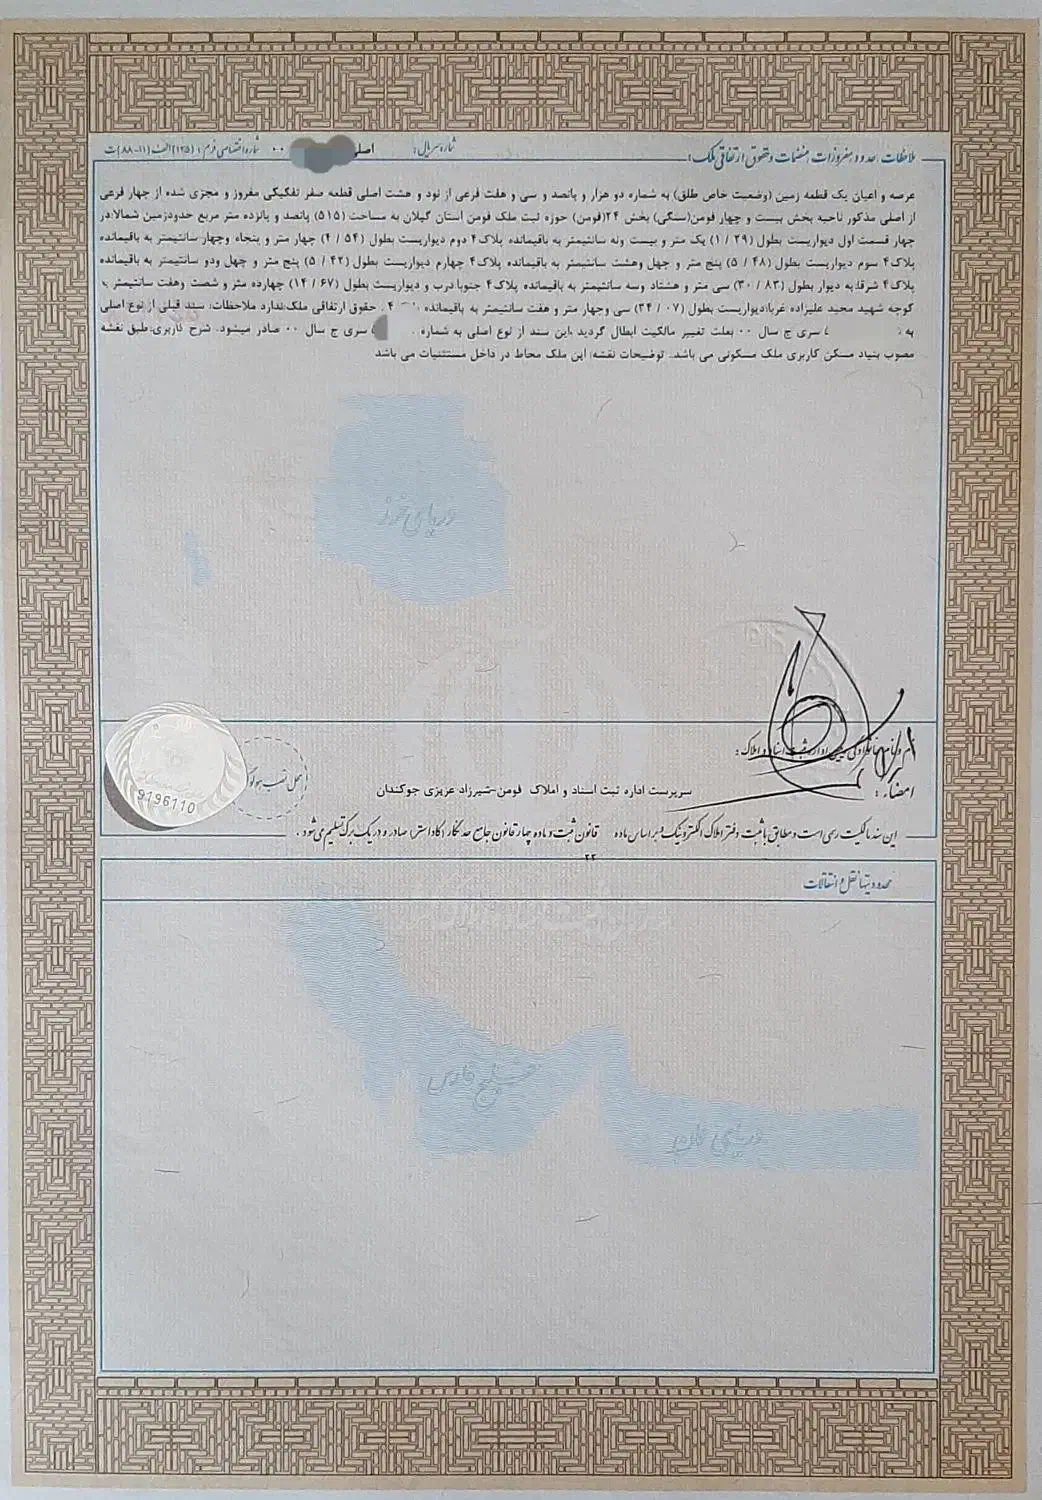 ملاحظات، حدود، مفروزات، منضمات و حقوق ارتفاقی ملک: شماره سریال: اصلی ۰۰ شماره اختصاصی فرم: ۱ (۱۲۵) الف (۱۱-۸۸) ت
عرصه و اعیان یک قطعه زمین (وضعیت خاص طلق) به شماره دو هزار و پانصد و سی و هفت فرعی از نود و هشت اصلی قطعه صفر تفکیکی مفروز و مجزی شده از چهار فرعی
از اصلی مذکور ناحیه بخش بیست و چهار فومن(سنگی) بخش ۲۴(فومن) حوزه ثبت ملک فومن استان گیلان به مساحت (۵۱۵) پانصد و پانزده متر مربع حدودزمین شمالا:در
چهار قسمت اول دیواریست بطول (۲۹ / ۱) یک متر و بیست ونه سانتیمتر به باقیمانده پلاک۴ دوم دیواریست بطول (۵۴ / ۴) چهار متر و پنجاه وچهار سانتیمتر به باقیمانده
پلاک۴ سوم دیواریست بطول (۴۸ / ۵) پنج متر و چهل وهشت سانتیمتر به باقیمانده پلاک۴ چهارم دیواریست بطول (۴۲ / ۵) پنج متر و چهل ودو سانتیمتر به باقیمانده
پلاک۴ شرقا:به دیوار بطول (۸۳ / ۳۰) سی متر و هشتاد وسه سانتیمتر به باقیمانده پلاک۴ جنوبا:درب و دیواریست بطول (۶۷ / ۱۴) چهارده متر و شصت وهفت سانتیمتر به
کوچه شهید مجید علیزاده غربا:دیواریست بطول (۰۷ / ۳۴) سی وچهار متر و هفت سانتیمتر به باقیمانده ۴ حقوق ارتفاقی ملک:ندارد ملاحظات: سند قبلی از نوع اصلی
به سری ج سال ۰۰ بعلت تغییر مالکیت ابطال گردید .این سند از نوع اصلی به شماره سری ج سال ۰۰ صادر میشود. شرح کاربری:طبق نقشه
مصوب بنیاد مسکن کاربری ملک مسکونی می باشد. توضیحات نقشه: این ملک محاط در داخل مستثنیات می باشد
دریای خزر
نام و نام خانوادگی رئیس اداره ثبت اسناد و املاک:
محل نصب هولوگرام
9196110
امضاء:
سرپرست اداره ثبت اسناد و املاک فومن-شیرزاد عزیزی جوکندان
این سند مالکیت رسمی است و مطابق با ثبت دفتر املاک الکترونیک و بر اساس ماده ۲۲ قانون ثبت و ماده چهار قانون جامع حدنگار (کاداستر) صادر و در یک برگ تسلیم می‌شود.
محدودیتها نقل و انتقالات
خلیج فارس
دریای عمان